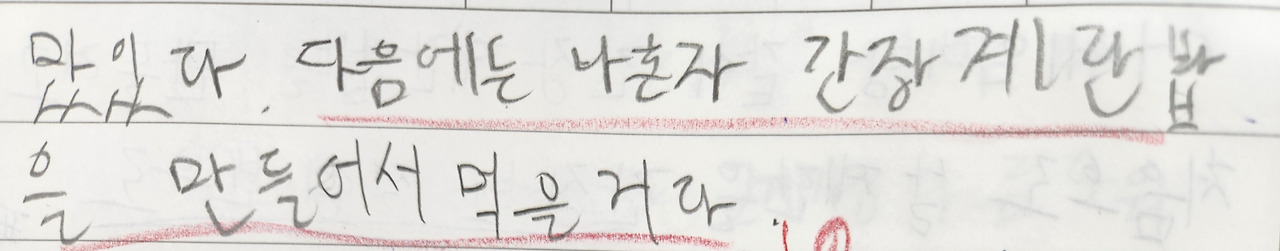 맛있다. 다음에는 나혼자 간장계란밥
을 만들어서 먹을거다